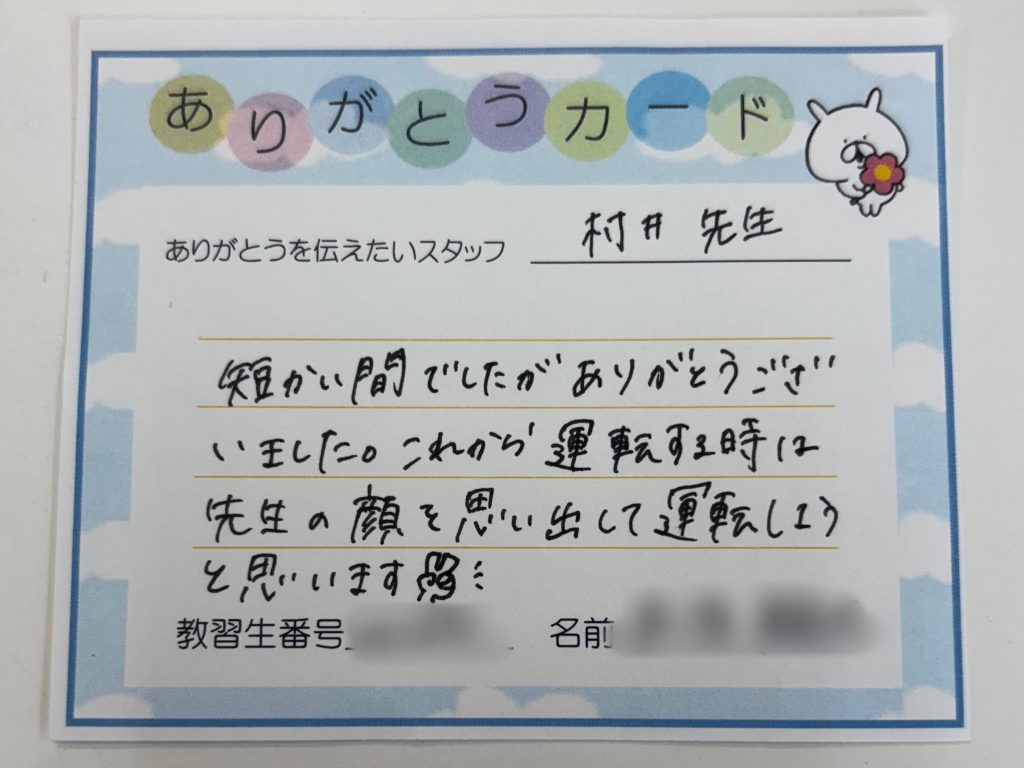 ありがとうカード
ありがとうを伝えたいスタッフ 村井 先生
短かい間でしたがありがとうござ
いました。これから運転する時は
先生の顔を思い出して運転しよう
と思います
教習生番号 名前